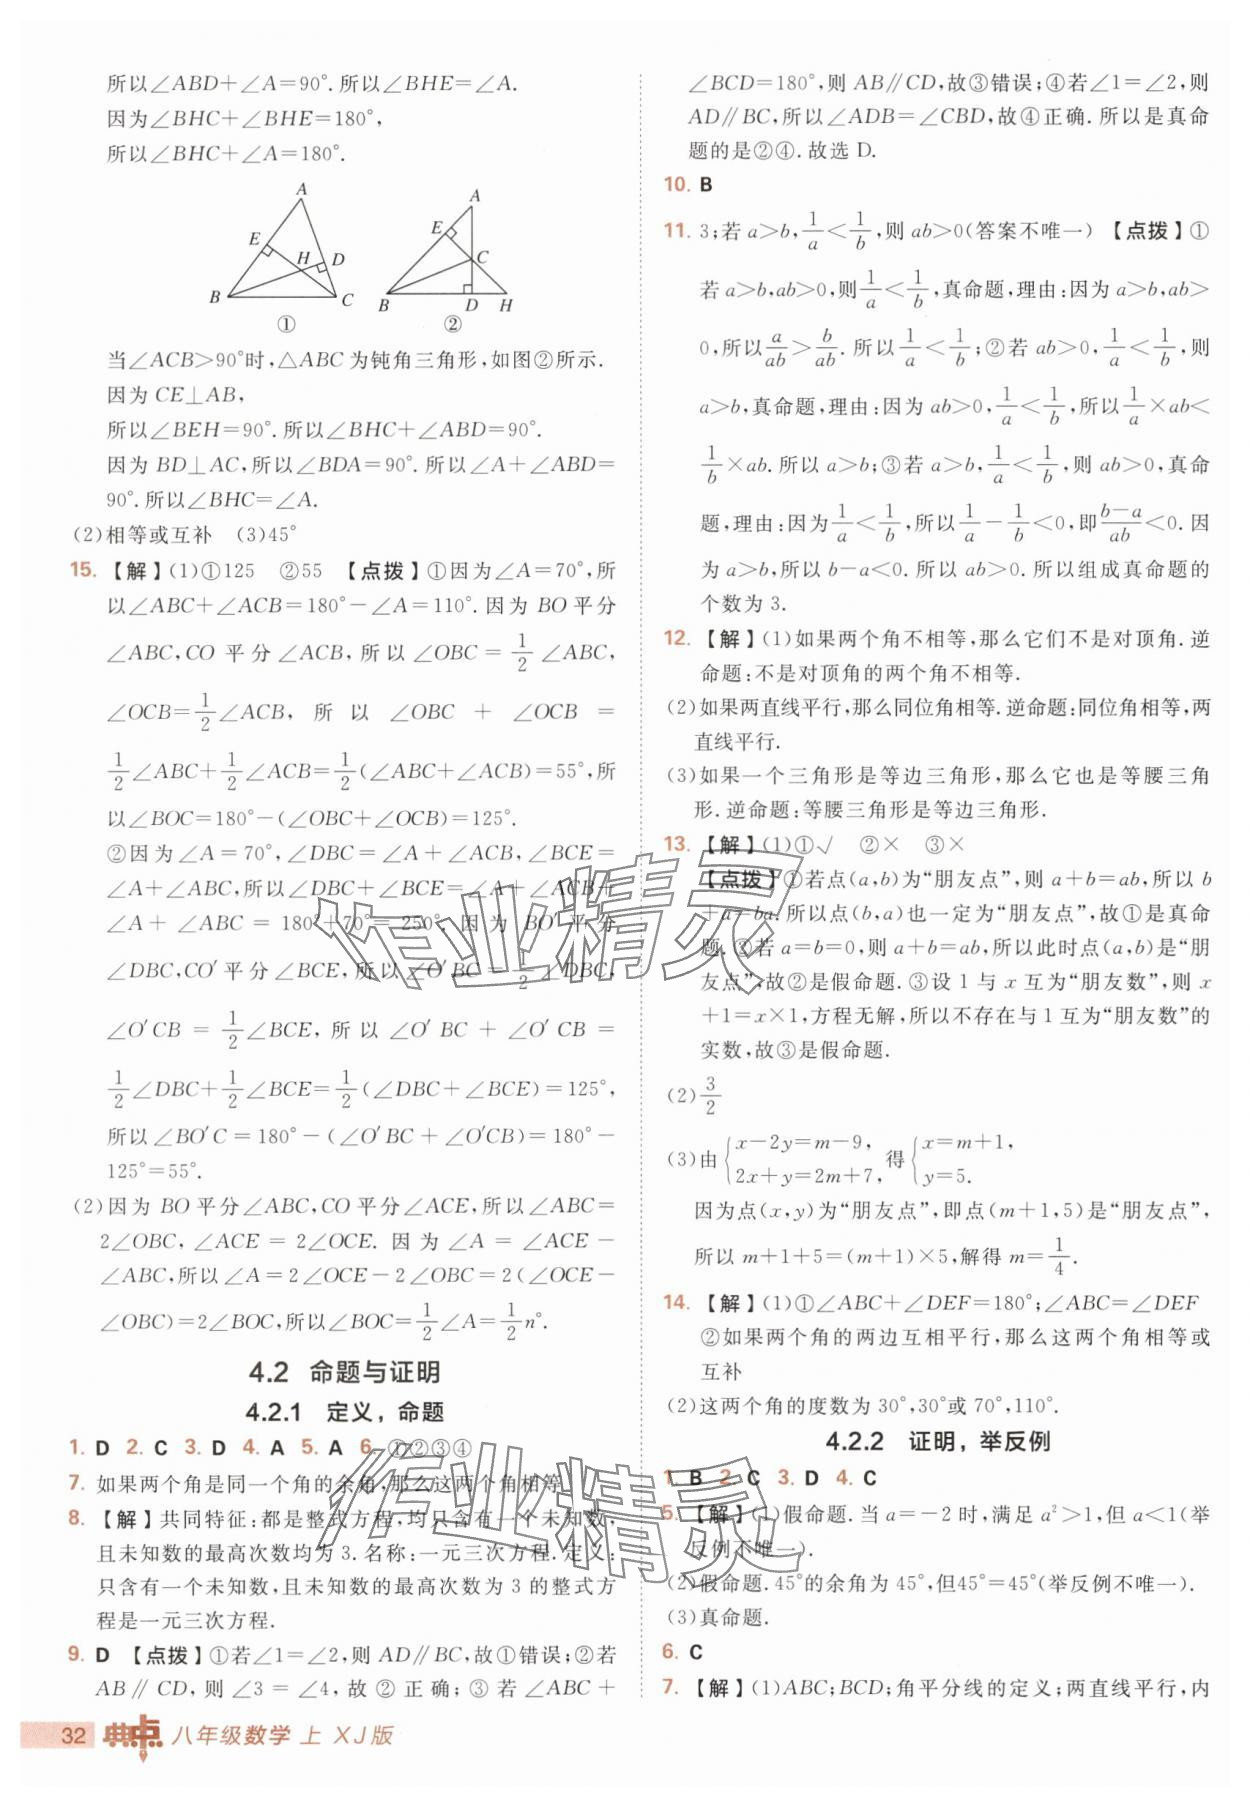 所以∠ABD+∠A=90°.所以∠BHE=∠A.
因为∠BHC+∠BHE=180°,
所以∠BHC+∠A=180°.
A
E
H
D
B
C
①
A
E
C
B
D
H
②
当∠ACB>90°时,△ABC为钝角三角形,如图②所示.
因为CE⊥AB,
所以∠BEH=90°.所以∠BHC+∠ABD=90°.
因为BD⊥AC,所以∠BDA=90°.所以∠A+∠ABD=
90°.所以∠BHC=∠A.
(2)相等或互补 (3)45°
15. 【解】(1)①125 ②55 【点拨】①因为∠A=70°,所
以∠ABC+∠ACB=180°-∠A=110°.因为BO平分
∠ABC,CO平分∠ACB,所以∠OBC=1/2∠ABC,
∠OCB=1/2∠ACB,所以∠OBC+∠OCB=
1/2∠ABC+1/2∠ACB=1/2(∠ABC+∠ACB)=55°,所
以∠BOC=180°-(∠OBC+∠OCB)=125°.
②因为∠A=70°,∠DBC=∠A+∠ACB,∠BCE=
∠A+∠ABC,所以∠DBC+∠BCE=∠A+∠ACB+
∠A+∠ABC=180°+70°=250°.因为BO′平分
∠DBC,CO′平分∠BCE,所以∠O′BC=1/2∠DBC,
∠O′CB=1/2∠BCE,所以∠O′BC+∠O′CB=
1/2∠DBC+1/2∠BCE=1/2(∠DBC+∠BCE)=125°,
所以∠BO′C=180°-(∠O′BC+∠O′CB)=180°-
125°=55°.
(2)因为BO平分∠ABC,CO平分∠ACE,所以∠ABC=
2∠OBC,∠ACE=2∠OCE.因为∠A=∠ACE-
∠ABC,所以∠A=2∠OCE-2∠OBC=2(∠OCE-
∠OBC)=2∠BOC,所以∠BOC=1/2∠A=1/2n°.
4.2 命题与证明
4.2.1 定义,命题
1. D 2. C 3. D 4. A 5. A 6. ①②③④
7. 如果两个角是同一个角的余角,那么这两个角相等
8. 【解】共同特征:都是整式方程,均只含有一个未知数,
且未知数的最高次数均为3.名称:一元三次方程.定义:
只含有一个未知数,且未知数的最高次数为3的整式方
程是一元三次方程.
9. D 【点拨】①若∠1=∠2,则AD∥BC,故①错误;②若
AB∥CD,则∠3=∠4,故②正确;③若∠ABC+
∠BCD=180°,则AB∥CD,故③错误;④若∠1=∠2,则
AD∥BC,所以∠ADB=∠CBD,故④正确.所以是真命
题的是②④.故选D.
10. B
11. 3;若a>b,1/a<1/b,则ab>0(答案不唯一) 【点拨】①
若a>b,ab>0,则1/a<1/b,真命题,理由:因为a>b,ab>
0,所以a/ab>b/ab.所以1/a<1/b;②若ab>0,1/a<1/b,则
a>b,真命题,理由:因为ab>0,1/a<1/b,所以1/a×ab<
1/b×ab.所以a>b;③若a>b,1/a<1/b,则ab>0,真命
题,理由:因为1/a<1/b,所以1/a-1/b<0,即(b-a)/ab<0.因
为a>b,所以b-a<0.所以ab>0.所以组成真命题的
个数为3.
12. 【解】(1)如果两个角不相等,那么它们不是对顶角.逆
命题:不是对顶角的两个角不相等.
(2)如果两直线平行,那么同位角相等.逆命题:同位角相等,两
直线平行.
(3)如果一个三角形是等边三角形,那么它也是等腰三角
形.逆命题:等腰三角形是等边三角形.
13. 【解】(1)①√ ②× ③×
【点拨】①若点(a,b)为“朋友点”,则a+b=ab,所以b
+a=ba.所以点(b,a)也一定为“朋友点”,故①是真命
题.②若a=b=0,则a+b=ab,所以此时点(a,b)是“朋
友点”,故②是假命题.③设1与x互为“朋友数”,则x
+1=x×1,方程无解,所以不存在与1互为“朋友数”的
实数,故③是假命题.
(2)3/2
(3)由{x-2y=m-9, 2x+y=2m+7, 得{x=m+1, y=5.
因为点(x,y)为“朋友点”,即点(m+1,5)是“朋友点”,
所以m+1+5=(m+1)×5,解得m=1/4.
14. 【解】(1)①∠ABC+∠DEF=180°;∠ABC=∠DEF
②如果两个角的两边互相平行,那么这两个角相等或
互补
(2)这两个角的度数为30°,30°或70°,110°.
4.2.2 证明,举反例
1. B 2. C 3. D 4. C
5. 【解】(1)假命题.当a=-2时,满足a²>1,但a<1(举
反例不唯一).
(2)假命题.45°的余角为45°,但45°=45°(举反例不唯一).
(3)真命题.
6. C
7. 【解】(1)ABC;BCD;角平分线的定义;两直线平行,内
作业精灵
作业精灵
32 典中点 八年级数学 上 XJ版